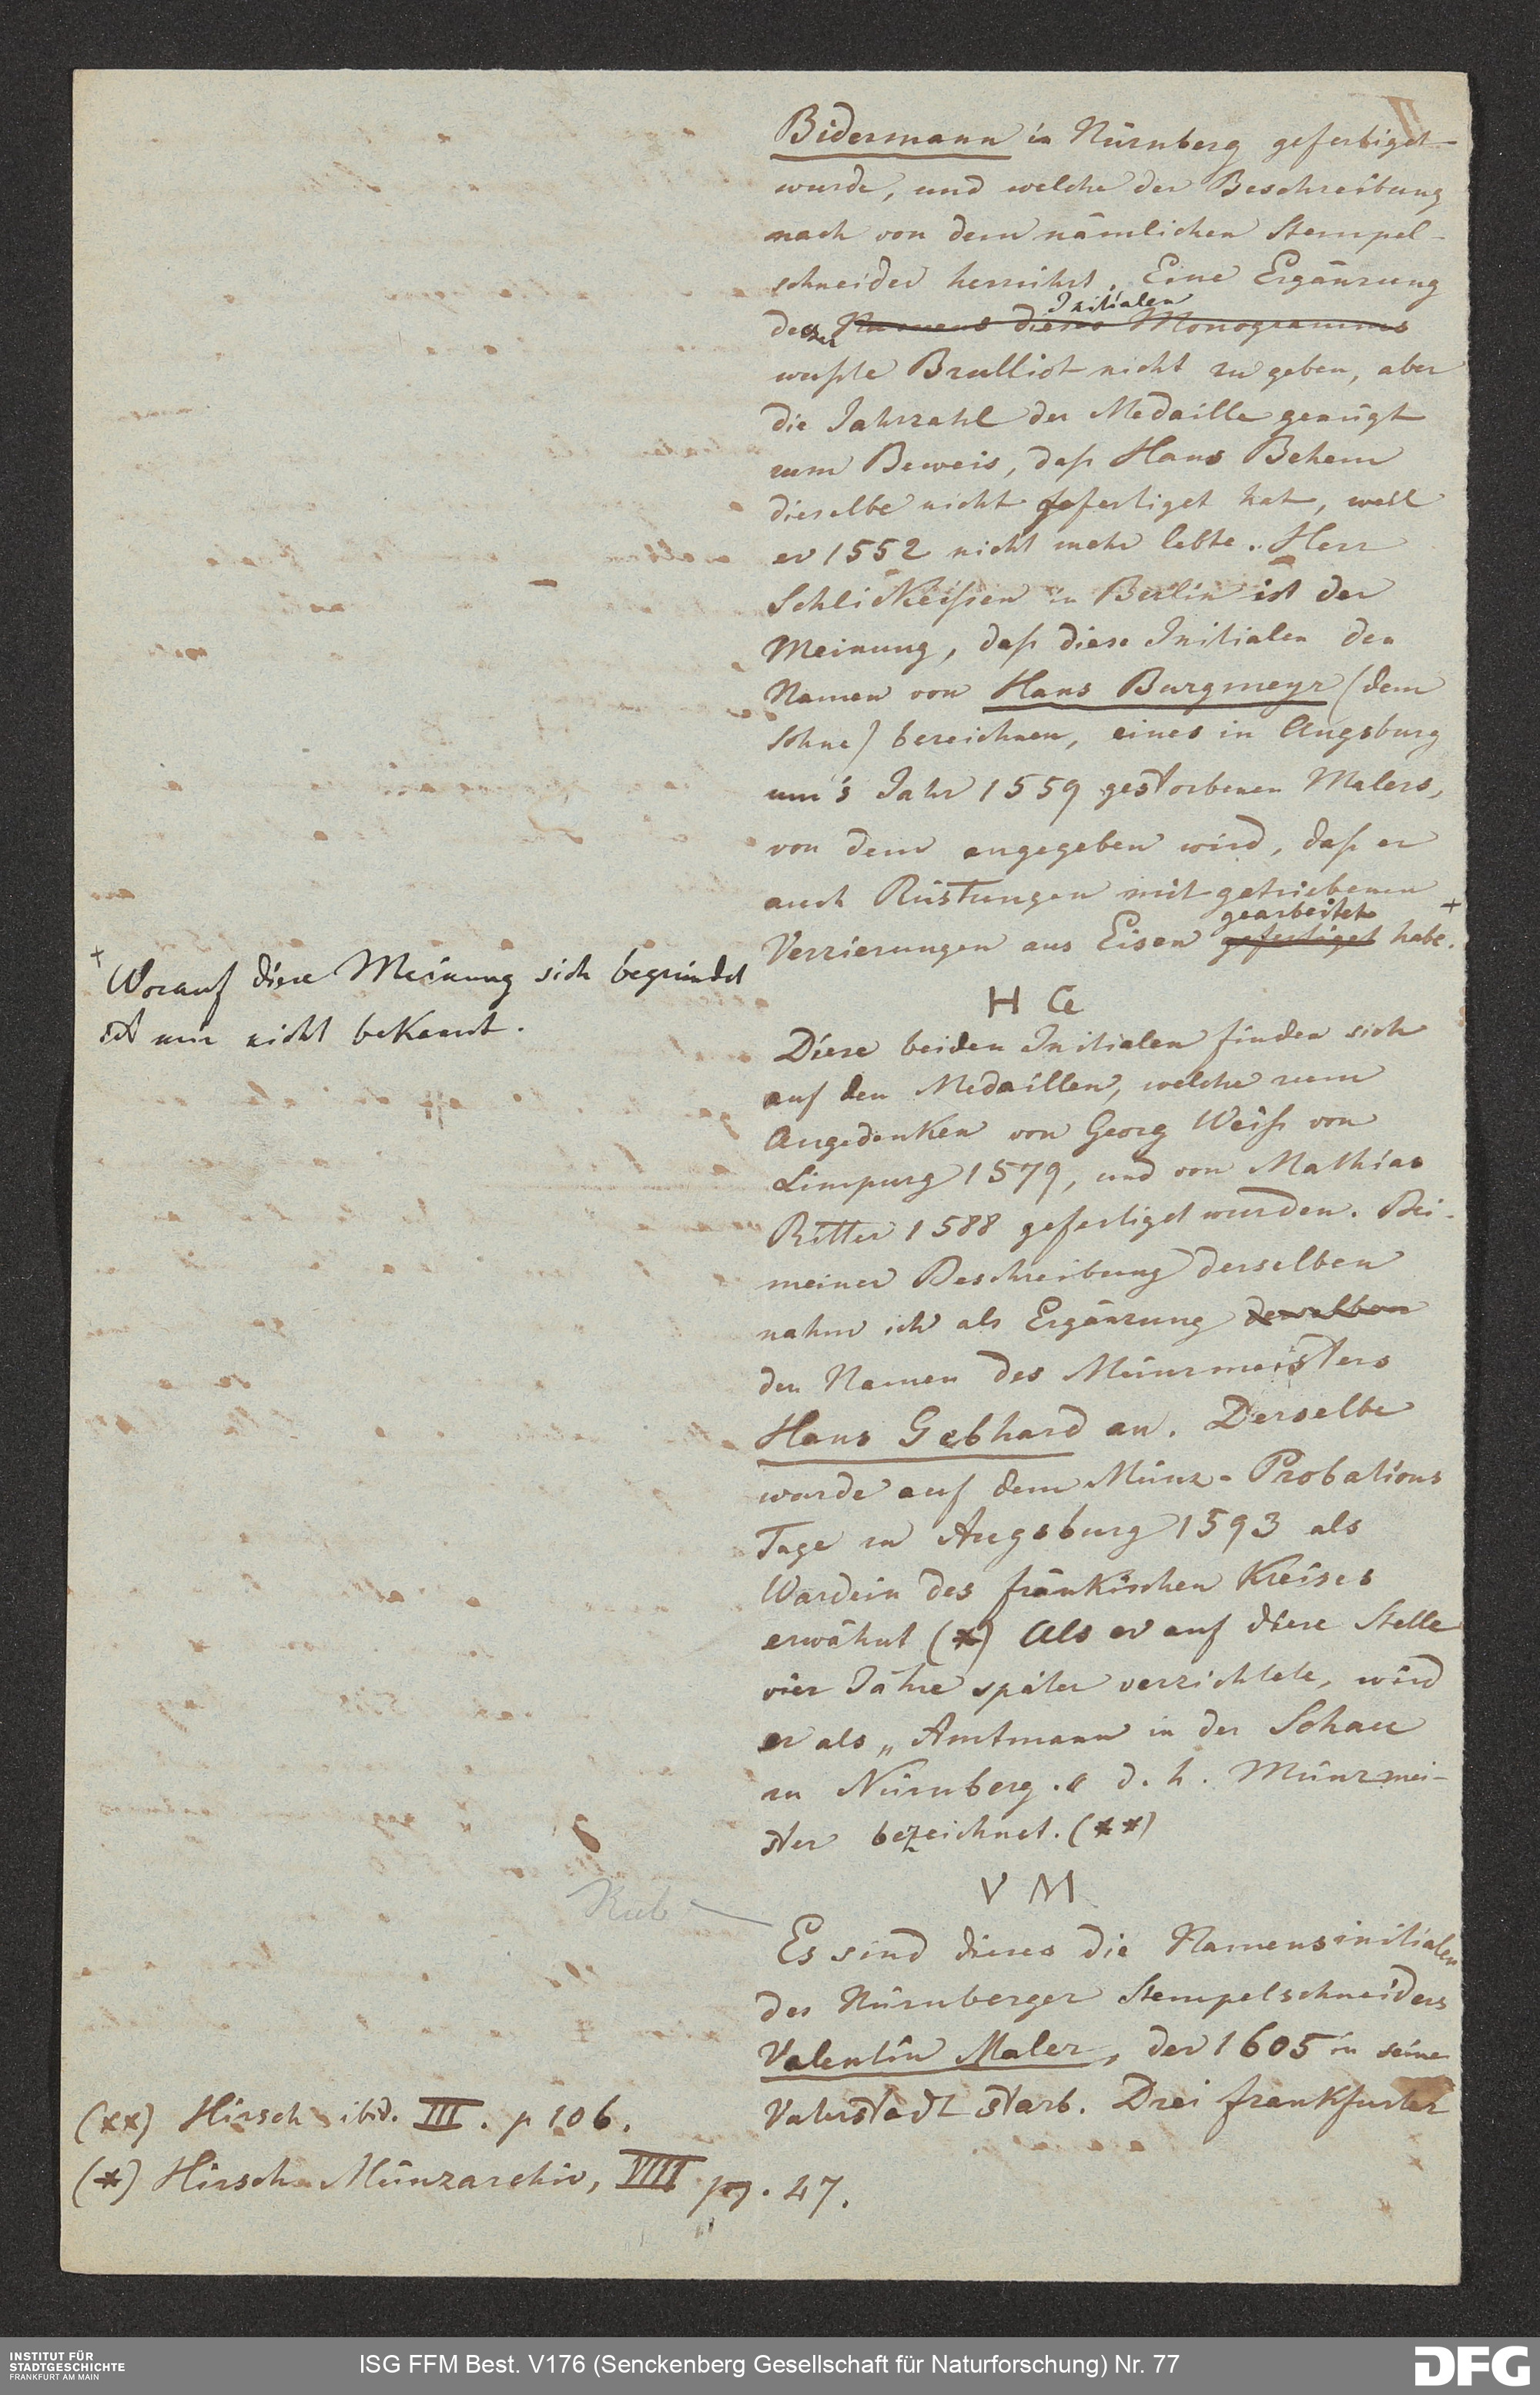 II
Bidermann in Nürnberg gefertiget
wurde, und welche der Beschreibung
nach von dem nämlichen Stempel-
schneider herrührt. Eine Ergänzung
dieser Namens dieses Monogramms Initialen
wußte Brulliot nicht zu geben, aber
die Jahrzahl der Medaille genügt
zum Beweis, daß Hans Behem
dieselbe nicht gefertiget hat, weil
er 1552 nicht mehr lebte. Herr
Schlickeißen in Berlin ist der
Meinung, daß diese Initialen den
Namen von Hans Burgmeyr (dem
Sohne) bezeichnen, eines in Augsburg
um's Jahr 1559 gestorbenen Malers,
von dem angegeben wird, daß er
auch Rüstungen mit getriebenen
Verzierungen aus Eisen gefertiget gearbeitet habe. +
+ Worauf diese Meinung sich begründet
ist mir nicht bekannt.
H G
Diese beiden Initialen finden sich
auf den Medaillen, welche zum
Angedenken von Georg Weiß von
Limpurg 1579, und von Mathias
Ritter 1588 gefertiget wurden. Bei
meiner Beschreibung derselben
nahm ich als Ergänzung derselben
den Namen des Münzmeisters
Hans Gebhard an. Derselbe
wurde auf dem Münz-Probations
Tage zu Augsburg 1593 als
Wardein des fränkischen Kreises
erwähnt (*) Als er auf diese Stelle
vier Jahre später verzichtete, wird
er als „Amtmann in der Schau
zu Nürnberg." d. h. Münzmei-
ster bezeichnet. (**)
V M
Es sind dieses die Namensinitialen
des Nürnberger Stempelschneiders
Valentin Maler, der 1605 in seiner
Vaterstadt starb. Drei frankfurter
(**) Hirsch ibid. III. p 106.
(*) Hirsch Münzarchiv, VIII pg. 47.
INSTITUT FÜR
STADTGESCHICHTE
FRANKFURT AM MAIN
ISG FFM Best. V176 (Senckenberg Gesellschaft für Naturforschung) Nr. 77
DFG